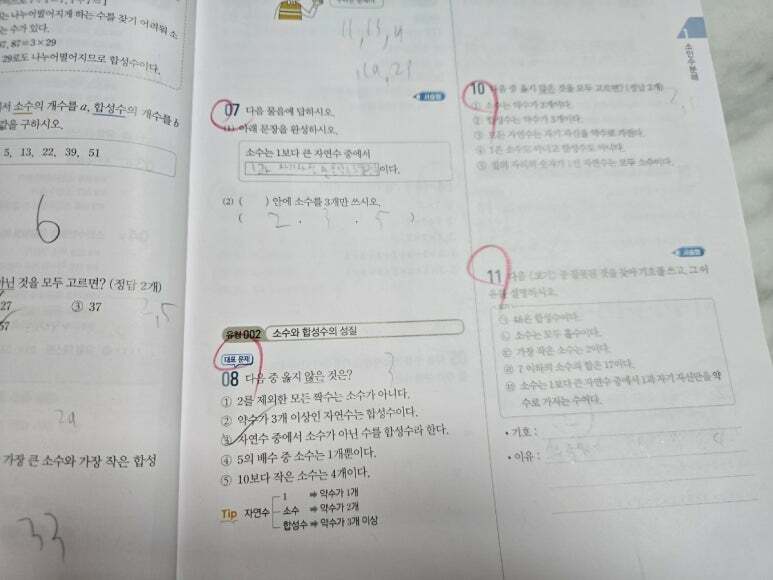 는 나누어떨어지게 하는 수를 찾기 어려워 소
는 수가 있다.
87=3×29
29로도 나누어떨어지므로 합성수이다.
서 소수의 개수를 a, 합성수의 개수를 b
값을 구하시오.
5, 13, 22, 39, 51
6
아닌 것을 모두 고르면? (정답 2개)
27
③ 37
57
3,5
가장 큰 소수와 가장 작은 합성
33
서술형
07 다음 물음에 답하시오.
(1) 아래 문장을 완성하시오.
소수는 1보다 큰 자연수 중에서
이다.
(2) ( ) 안에 소수를 3개만 쓰시오.
( 2 . 3 . 5 )
유형 002 소수와 합성수의 성질
대표 문제
08 다음 중 옳지 않은 것은?
3
① 2를 제외한 모든 짝수는 소수가 아니다.
② 약수가 3개 이상인 자연수는 합성수이다.
③ 자연수 중에서 소수가 아닌 수를 합성수라 한다.
④ 5의 배수 중 소수는 1개뿐이다.
⑤ 10보다 작은 소수는 4개이다.
Tip 자연수
1 ⇒ 약수가 1개
소수 ⇒ 약수가 2개
합성수 ⇒ 약수가 3개 이상
1 소인수분해
10 다음 중 옳지 않은 것을 모두 고르면? (정답 2개)
① 소수는 약수가 2개이다.
② 합성수는 약수가 3개이다.
③ 모든 자연수는 자기 자신을 약수로 가진다.
④ 1은 소수도 아니고 합성수도 아니다.
⑤ 일의 자리의 숫자가 1인 자연수는 모두 소수이다.
서술형
11 다음 〈보기〉 중 잘못된 것을 찾아 기호를 쓰고, 그 이
유를 설명하시오.
㉠ 48은 합성수이다.
㉡ 소수는 모두 홀수이다.
㉢ 가장 작은 소수는 2이다.
㉣ 7 이하의 소수의 합은 17이다.
㉤ 소수는 1보다 큰 자연수 중에서 1과 자기 자신만을 약
수로 가지는 수이다.
• 기호 :
• 이유 :